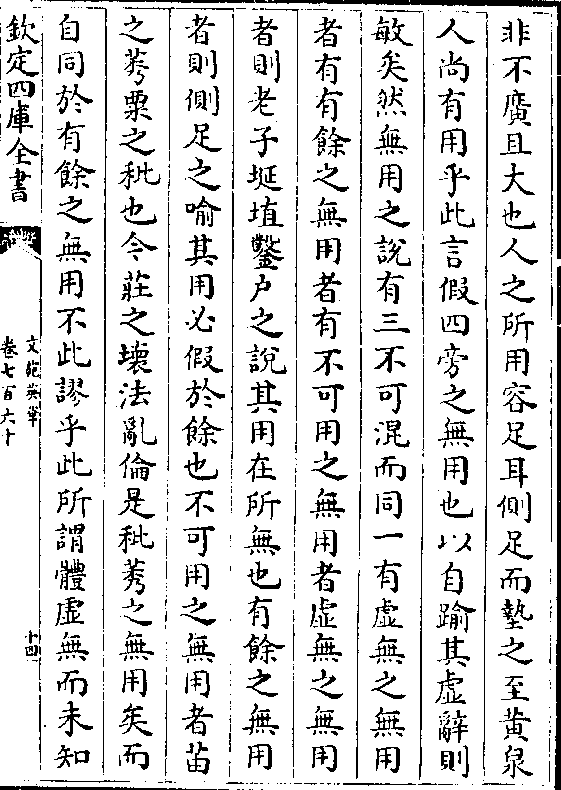 非不廣且大也人之所用容足耳側足而墊之至黃泉
人尚有用乎此言假四旁之無用也以自踰其虛辭則
敏矣然無用之說有三不可混而同一有虛無之無用
者有有餘之無用者有不可用之無用者虛無之無用
者則老子埏埴鑿戶之說其用在所無也有餘之無用
者則側足之喻其用必假於餘也不可用之無用者苗
之莠粟之秕也今莊之壞法亂倫是秕莠之無用矣而
自同於有餘之無用不此謬乎此所謂體虛無而未知
欽定四庫全書
文苑英華
卷七百六十
十四